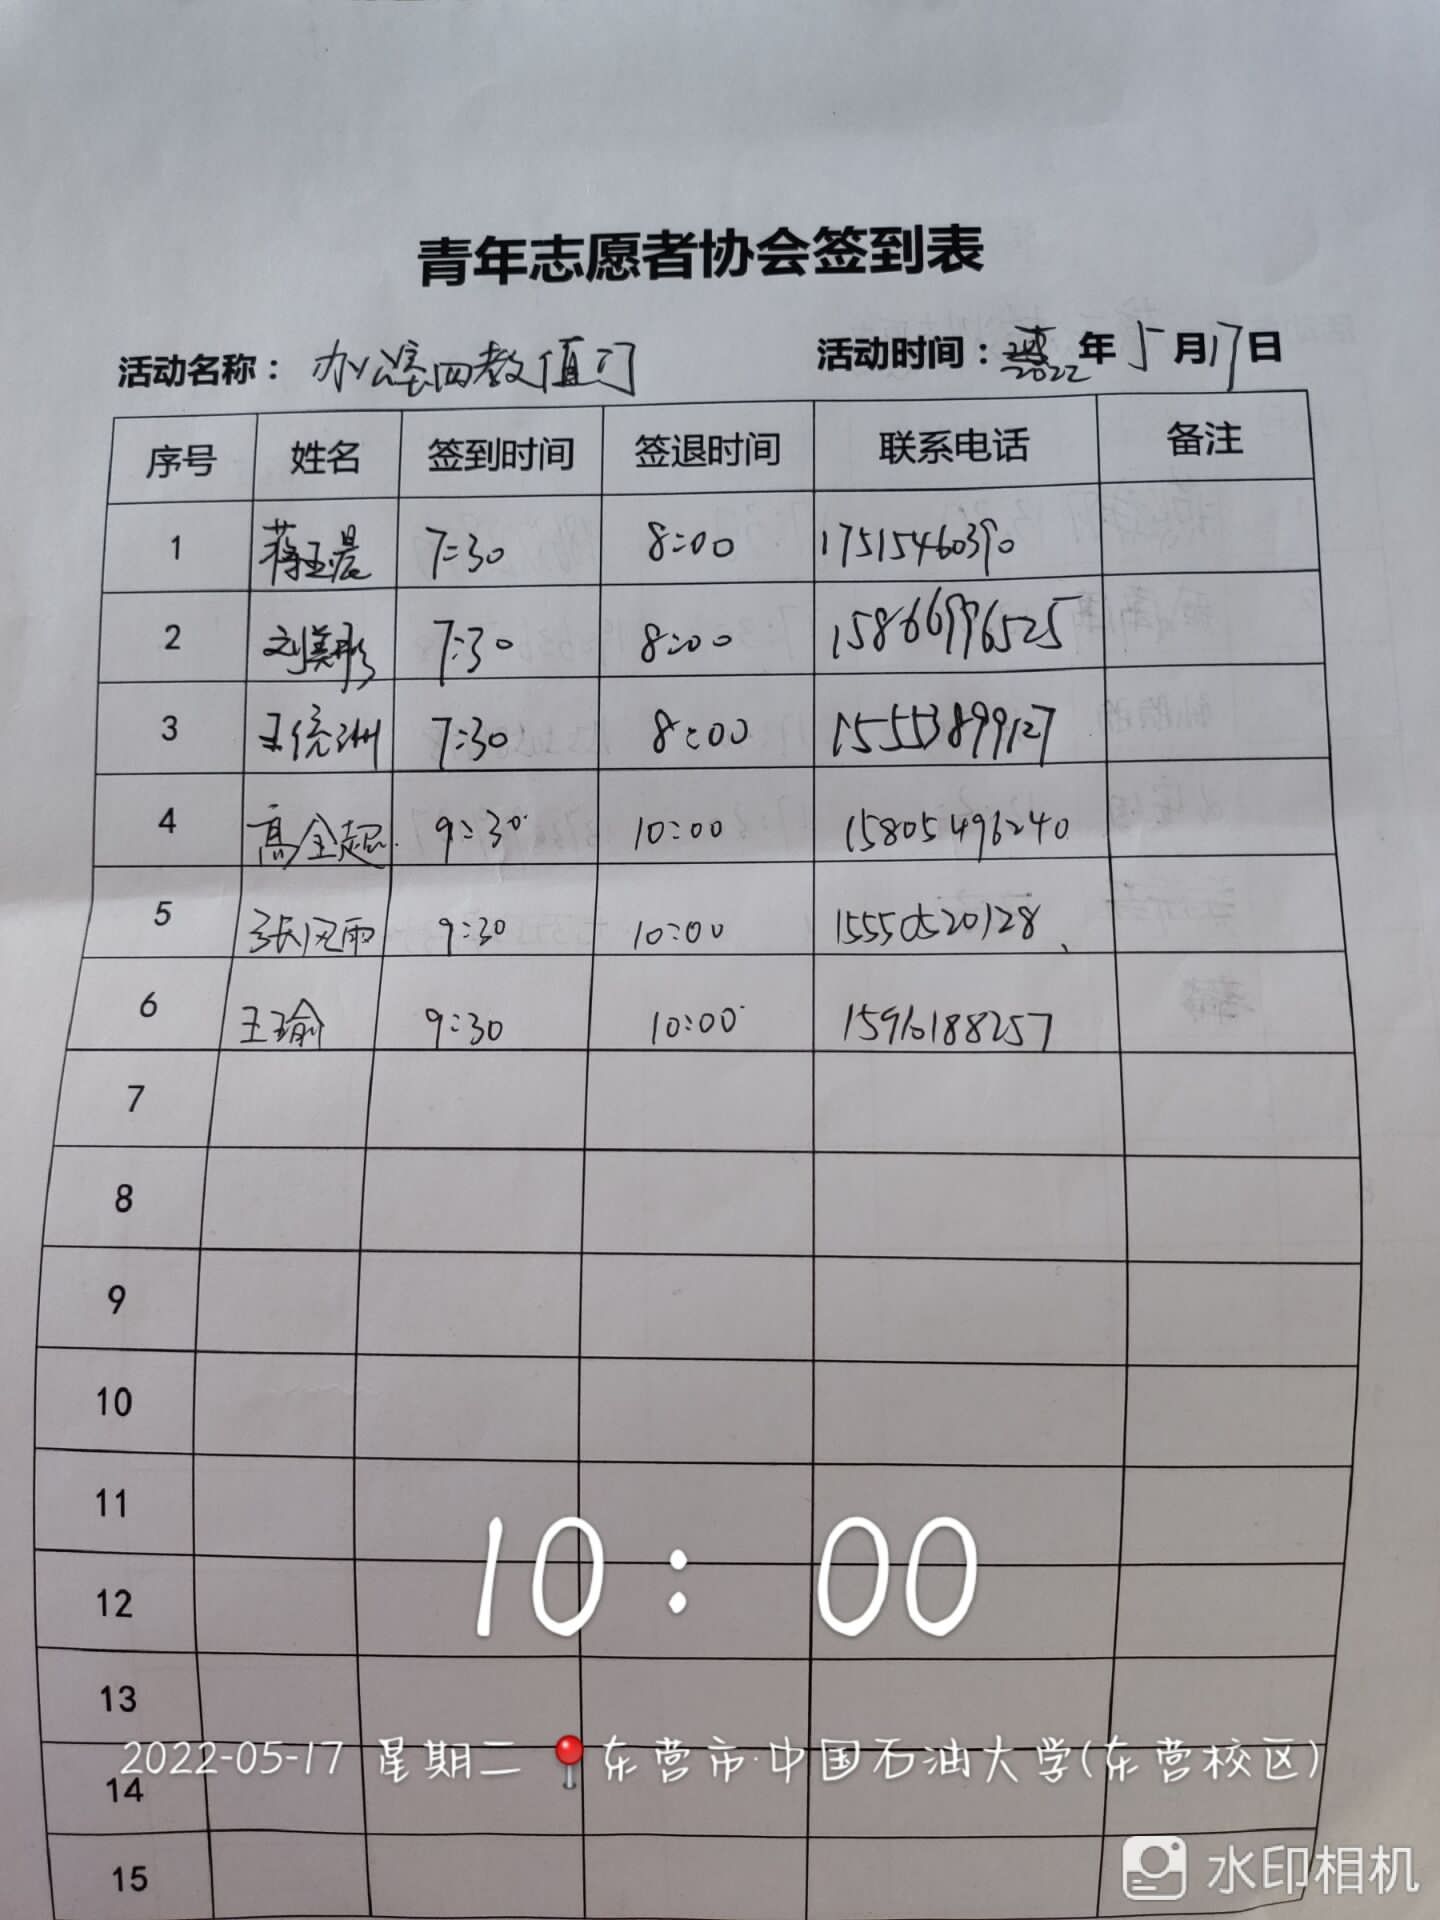 青年志愿者协会签到表
活动名称：办公室四教值门 活动时间：2022年5月17日
序号 姓名 签到时间 签退时间 联系电话 备注
1 蒋玉晨 7:30 8:00 17515460390
2 刘美彤 7:30 8:00 15866996525
3 王统洲 7:30 8:00 15553899127
4 高全超 9:30 10:00 15805496240
5 张风雨 9:30 10:00 15550520128
6 王瑜 9:30 10:00 15910188257
7
8
9
10
11
10:00
12
13
2022-05-17 星期二 东营市·中国石油大学(东营校区)
14
15
水印相机